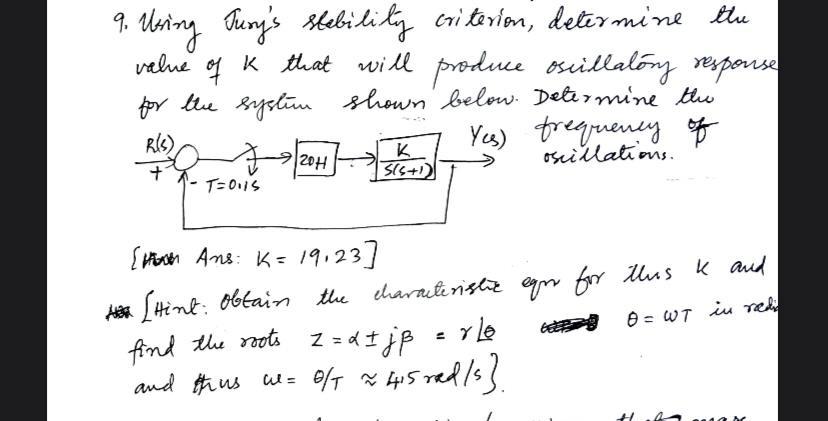 9. Using Jury's stability criterion, determine the
value of K that will produce oscillatory response
for the system shown below. Determine the
frequency of
oscillations.
R(s)
+
-
T=0.1s
ZOH
K
S(S+1)
Y(s)
[Ans: K = 19.23]
[Hint: Obtain the characteristic eqn for this K and
find the roots Z = α ± jβ = r∠θ θ = WT in radi
and thus ω = θ/T ≈ 4.5 rad/s].